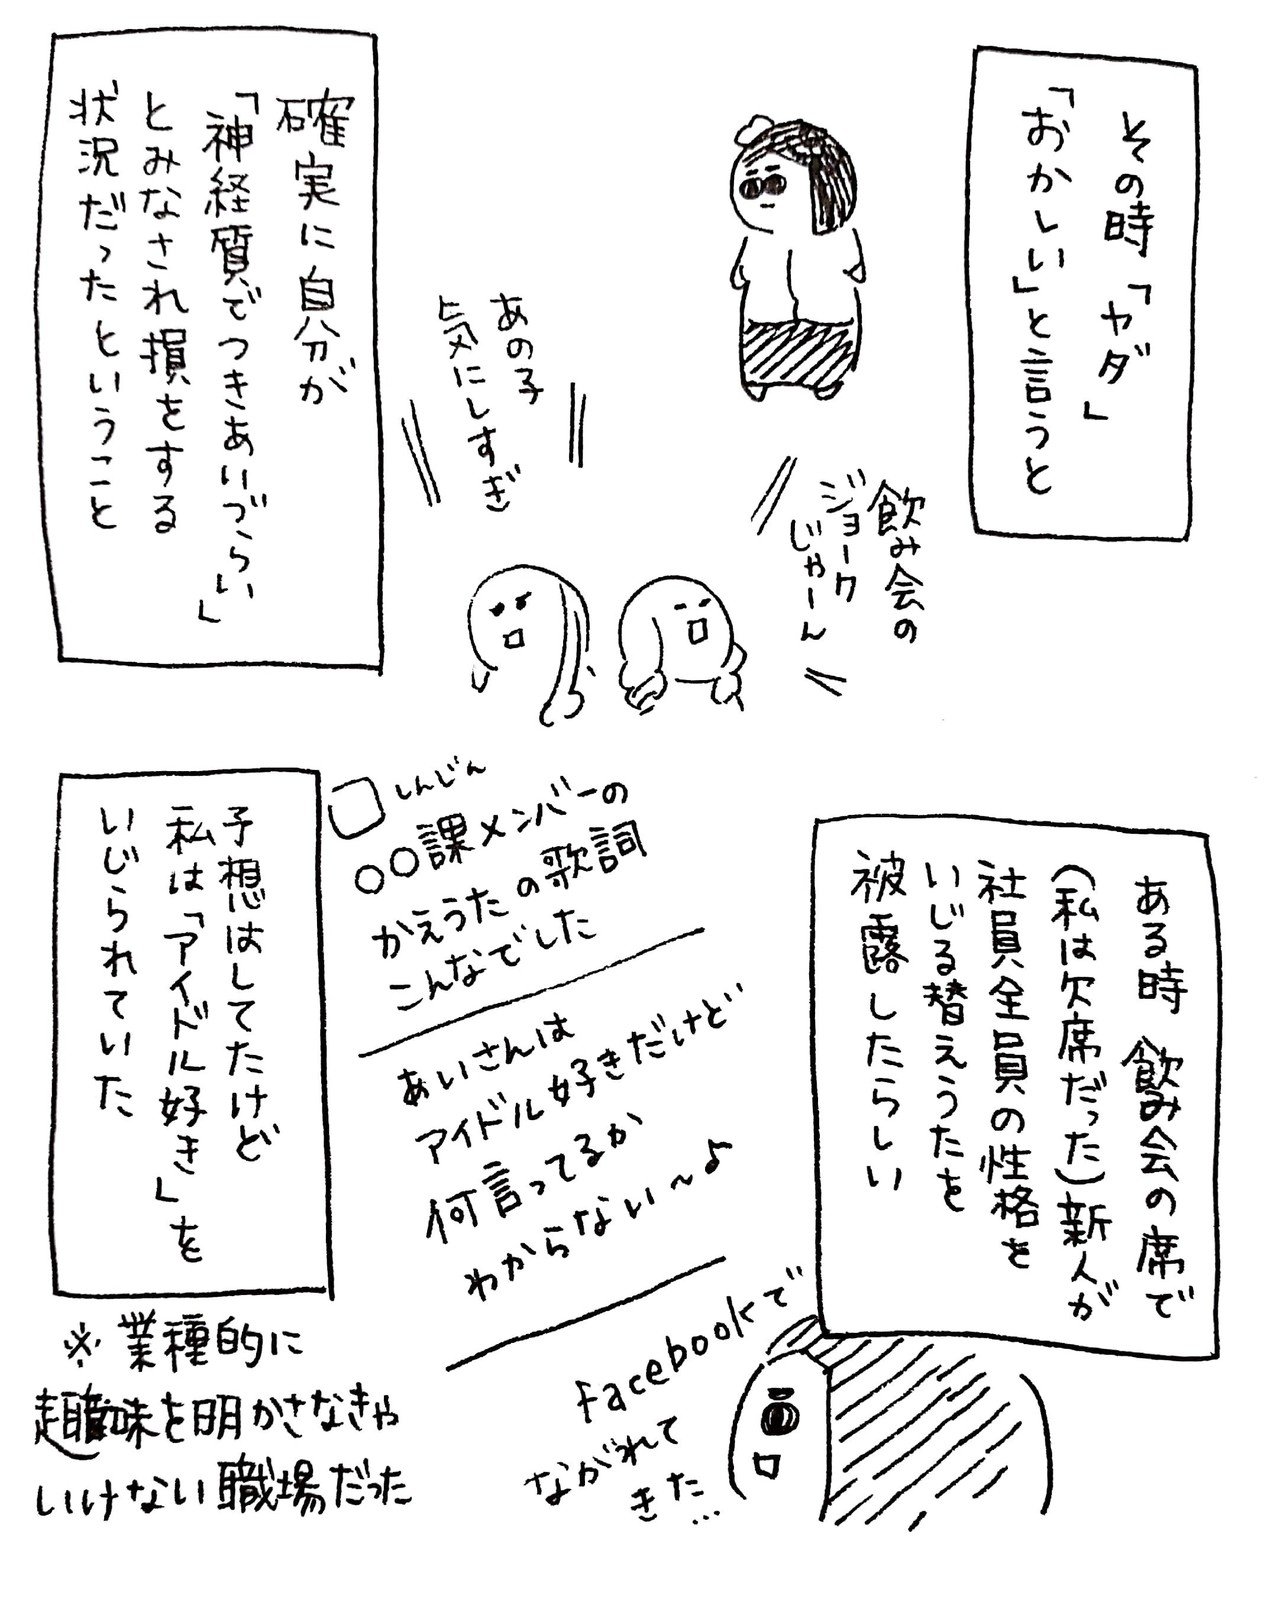 その時「ヤダ」
「おかしい」と言うと
飲み会の
ジョーク
じゃーん
あの子
気にしすぎ
確実に自分が
「神経質でつきあいづらい」
とみなされ損をする
状況だったということ
ある時 飲み会の席で
(私は欠席だった)新人が
社員全員の性格を
いじる替えうたを
被露したらしい
しんじん
○○課メンバーの
かえうたの歌詞
こんなでした
あいさんは
アイドル好きだけど
何言ってるか
わからない〜♪
Facebookで
ながれて
きた…
予想はしてたけど
私は「アイドル好き」を
いじられていた
※業種的に
趣味を明かさなきゃ
いけない職場だった